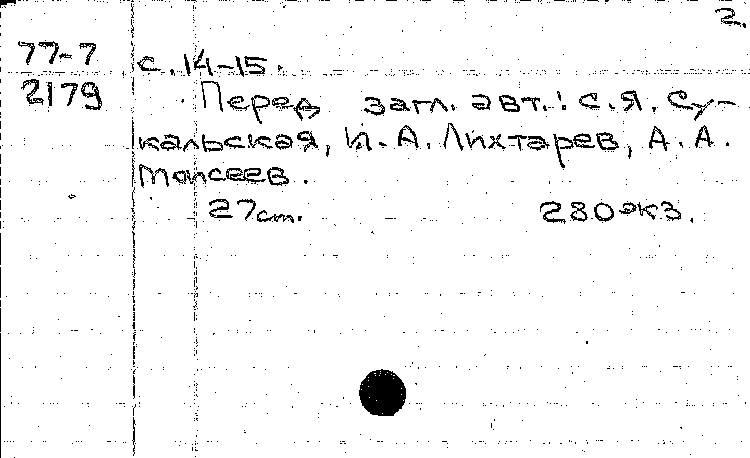 2.
77-7 с. 14-15.
2179 Перед загл. авт.: С.Я. Су-
кальская, И.А. Лихтарев, А.А.
Моисеев.
27 см. 280 экз.